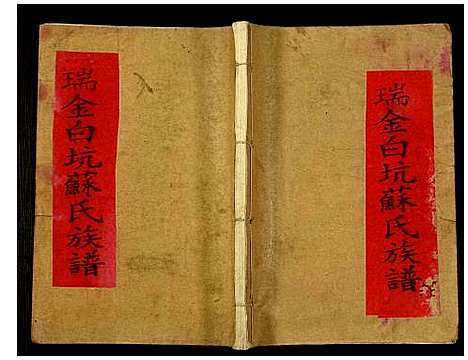 瑞金白坑蘇氏族譜
瑞金白坑蘇氏族譜